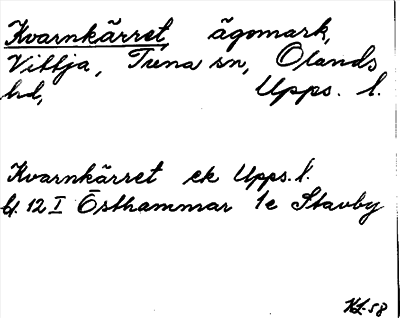 Kvarnkärret, ägomark,
Vittja, Tuna sn, Olands
hd, Upps. l.
Kvarnkärret ek Upps. l.
bl. 12 I Östhammar 1e Stavby
KL-58